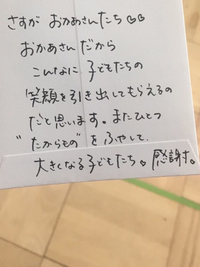 さすが おかあさんたち♡♡
おかあさんだから
こんなに 子どもたちの
笑顔を引き出してもらえるの
だと思います。またひとつ
"たからもの"をふやして
大きくなる子どもたち♡ 感謝。